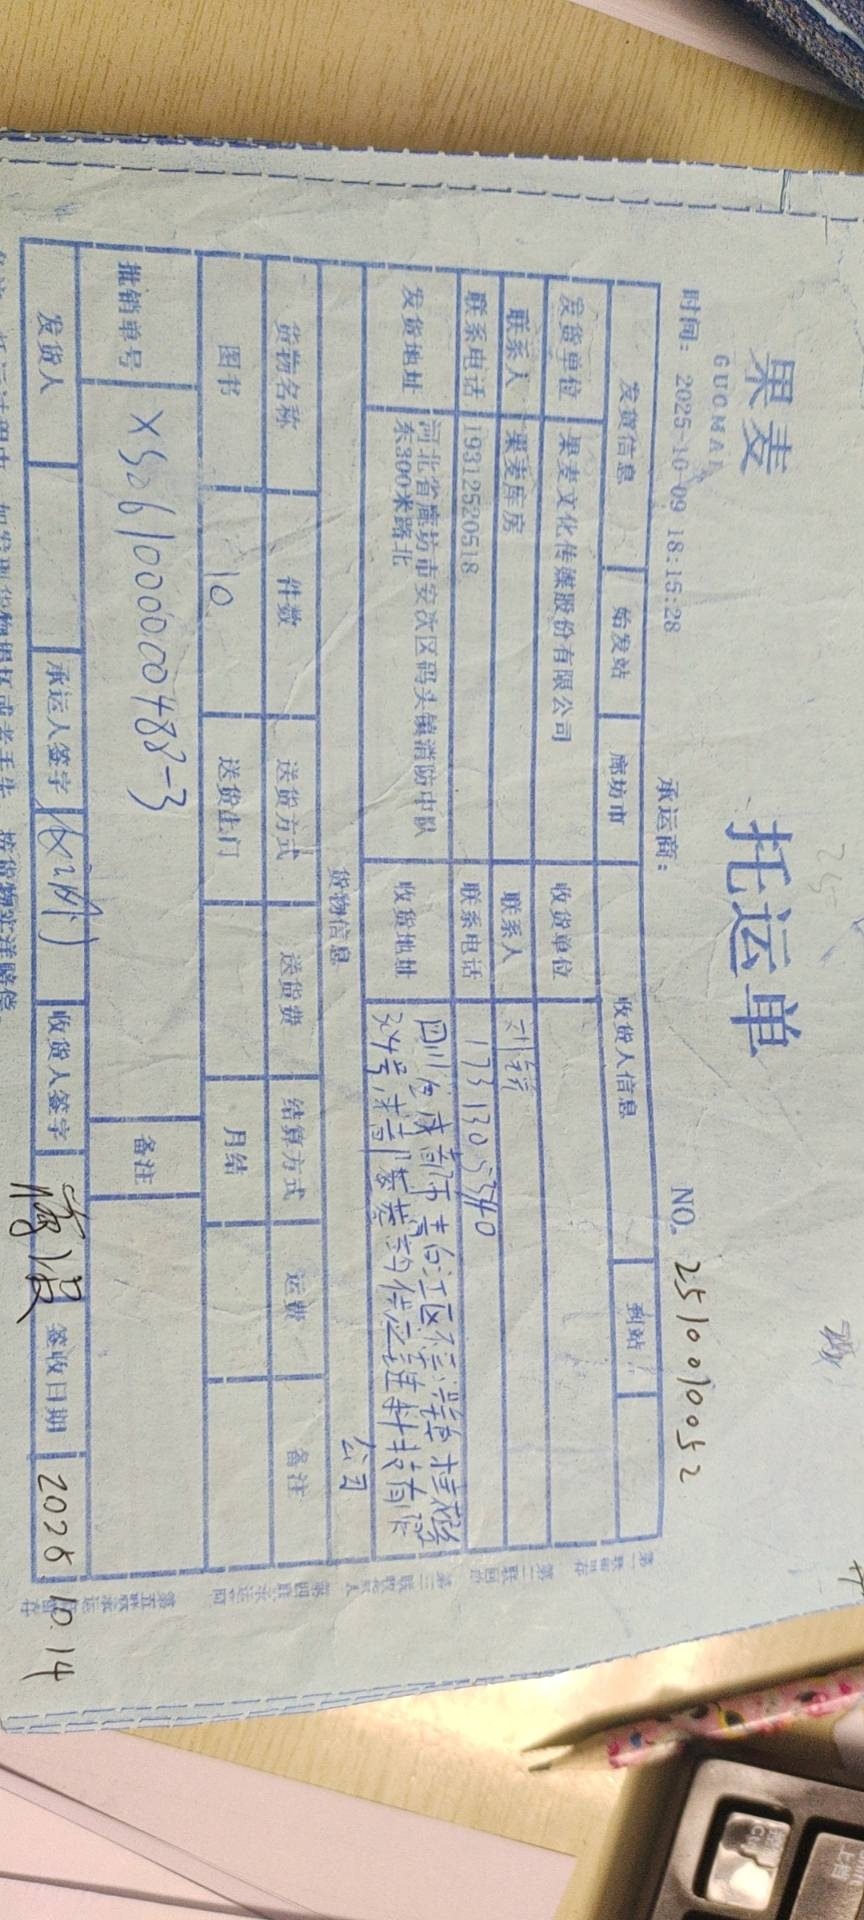 果麦
GUOMAI
托运单
时间: 2025-10-09 18:15:28
承运商:
NO. 2510010052
发货信息 始发站 廊坊市 收货人信息 到站
发货单位 果麦文化传媒股份有限公司 收货单位
联系人 果麦库房 联系人 刘
联系电话 19312520518 联系电话 17313055340
发货地址 河北省廊坊市安次区码头镇消防中队
东300米路北
收货地址 四川省成都市青白江区
号成都 供应链科技有限
公司
货物信息
货物名称 件数 送货方式 送货费 结算方式 运费 备注
图书 10 送货上门 月结
批销单号 XS261000000488-3 备注
发货人 承运人签字 收货人签字 签收日期 2025 10.14